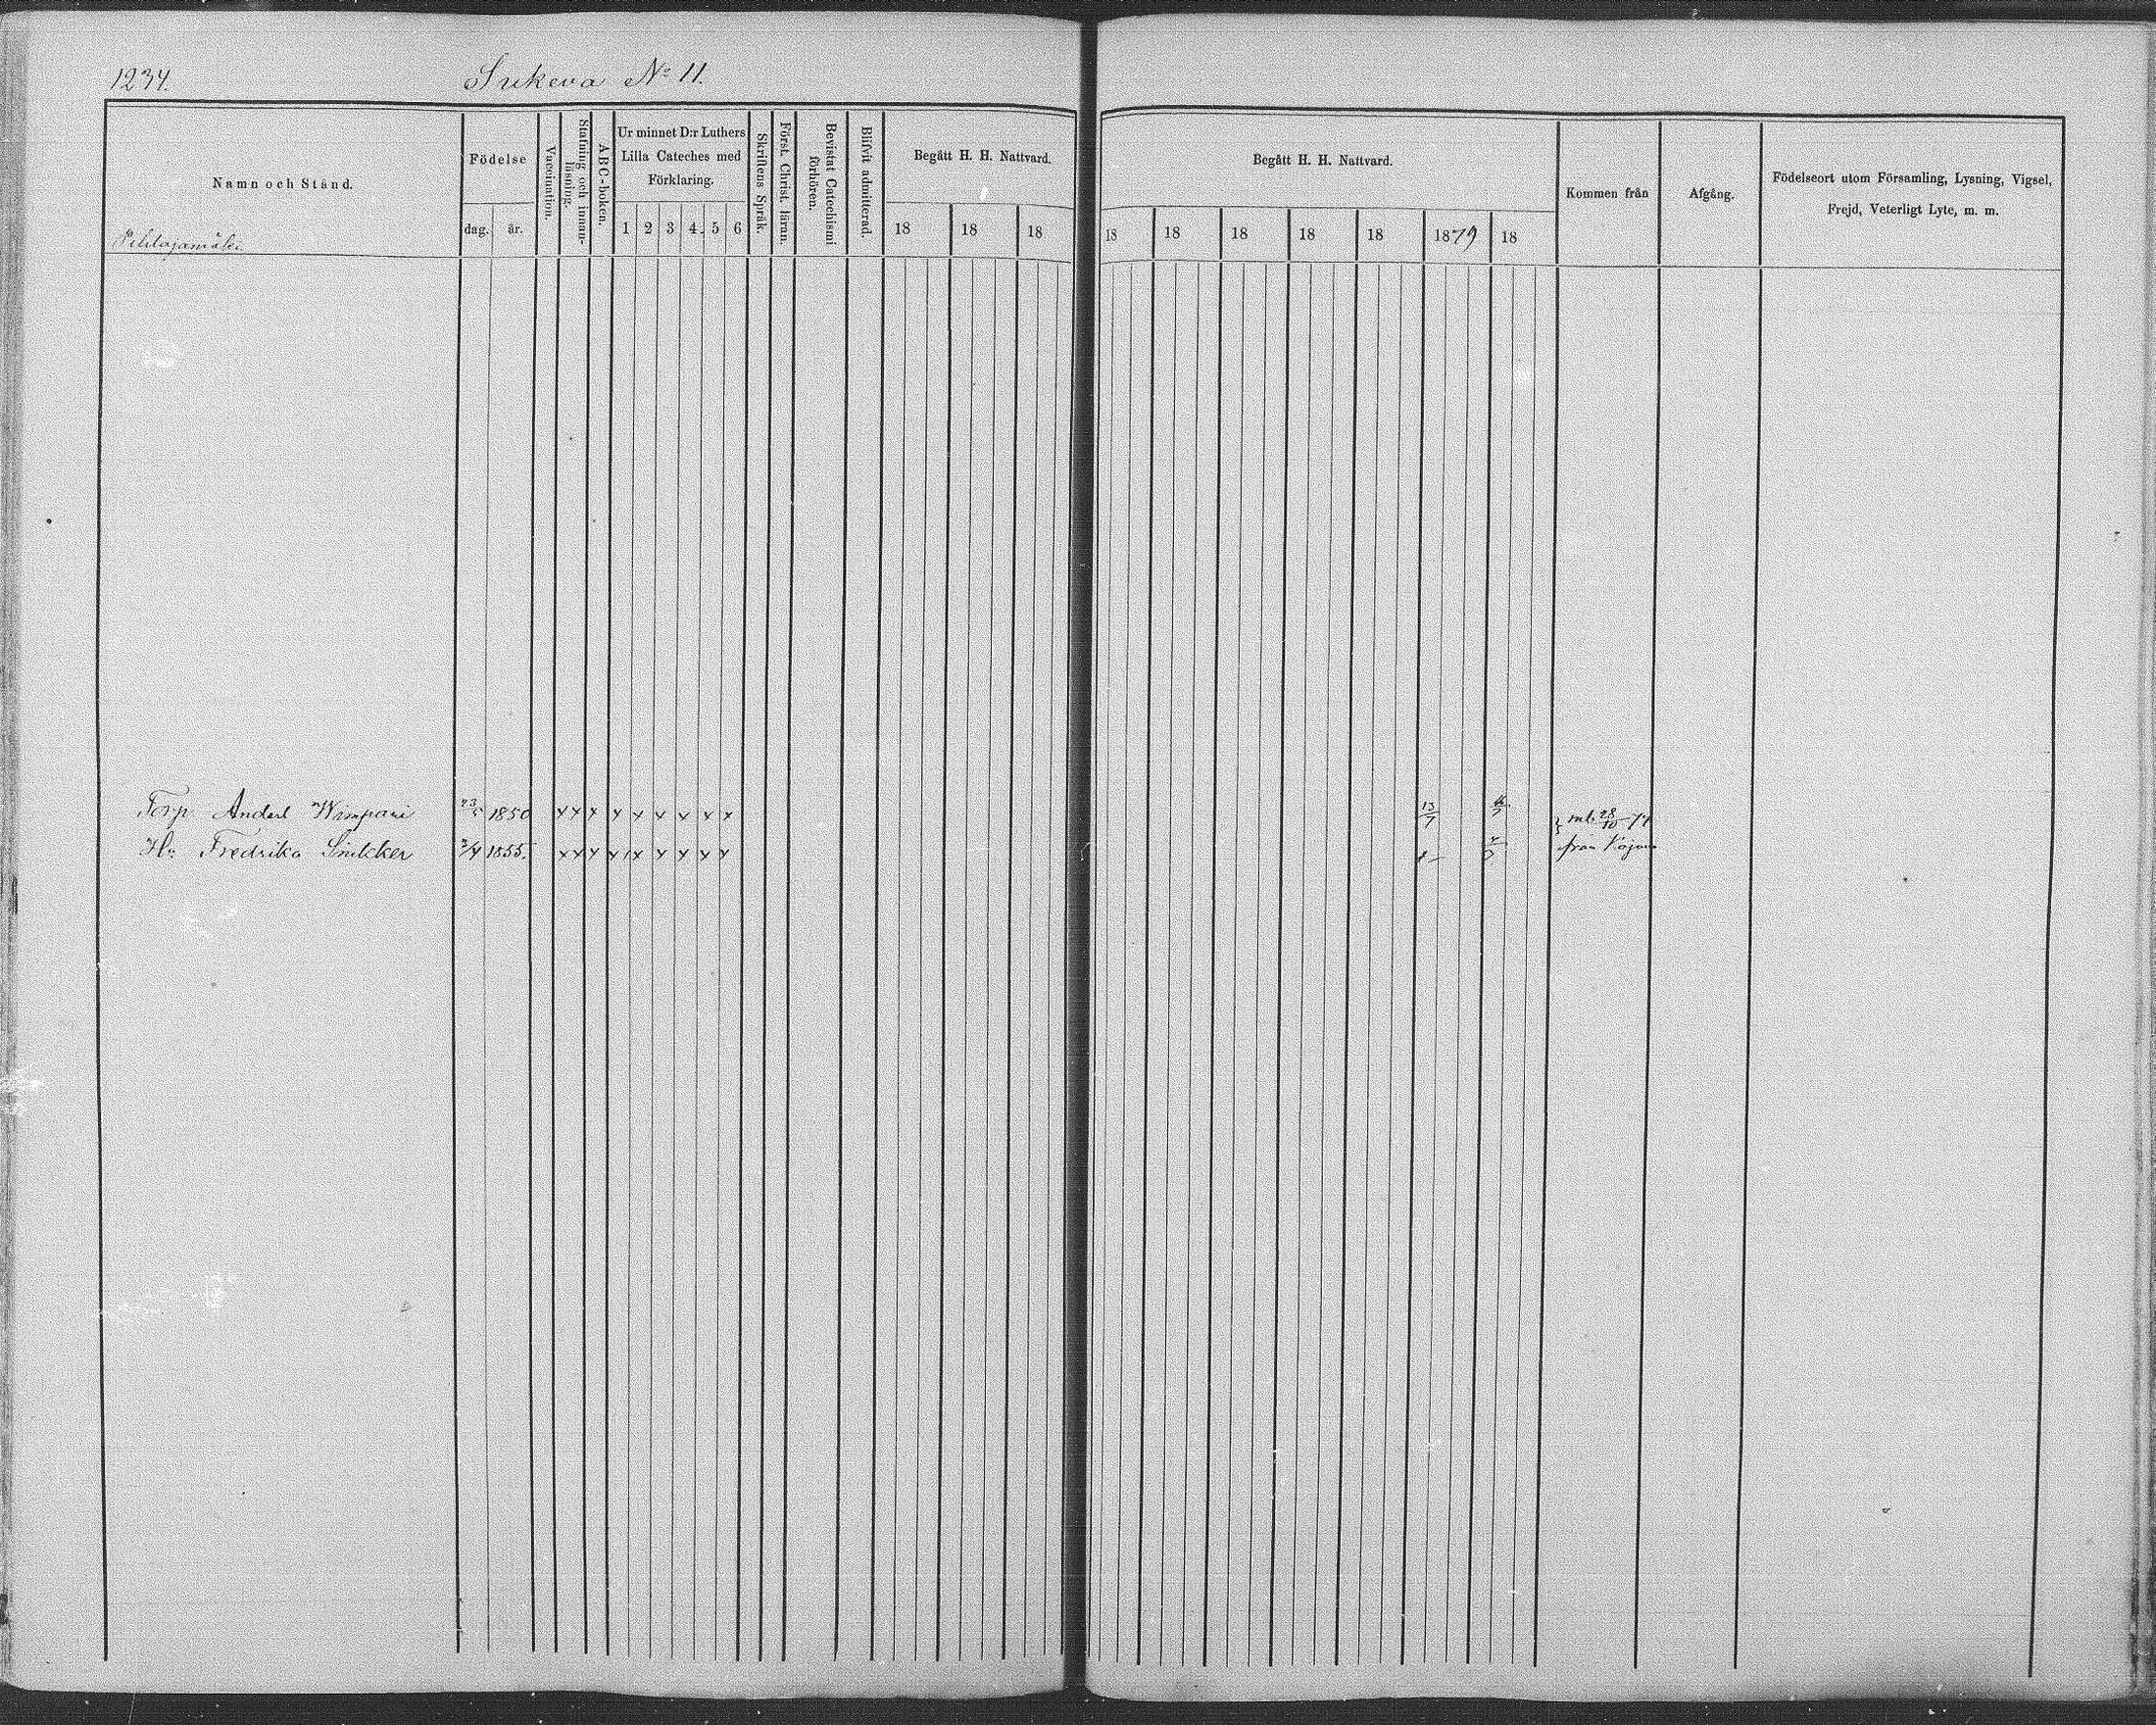 1234.
Sukeva No 11.
Namn och Stånd.
Pihlajamäki
Födelse
dag. år.
Vaccination.
Stafning och innan-
läsning.
ABC-boken.
Ur minnet D:r Luthers
Lilla Cateches med
Förklaring.
1 2 3 4. 5 6
Skriftens Språk.
Först. Christ. läran.
Bevistat Catechismi
förhören.
Blifvit admitterad.
Begått H. H. Nattvard.
18 18 18
Begått H. H. Nattvard.
18 18 18 18 18 1879 18
Kommen från
Afgång.
Födelseort utom Församling, Lysning, Vigsel,
Frejd, Veterligt Lyte, m. m.
Torp. Anders Wimpari 23/5 1850 x x x x x x x x x 13/7
H:u Fredrika 1855. x x x x x x x x x
från